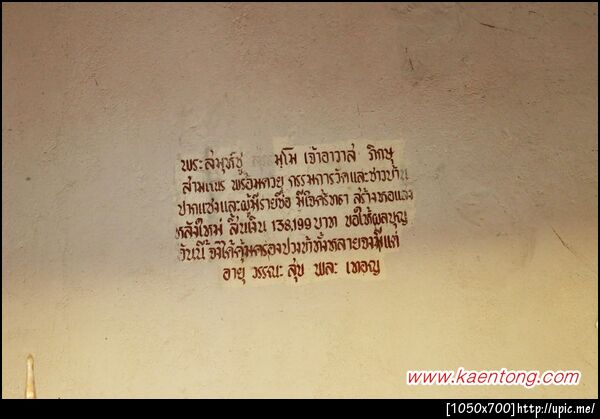 พระสมุห์ชู มุโม เจ้าอาวาส ภิกษุ
สามเณร พร้อมด้วย กรรมการวัดและชาวบ้าน
ปากแซงและผู้มีรายชื่อ มีจิตศรัทธา สร้างหอแสง
หลังใหม่ สิ้นเงิน 138,199 บาท ขอให้ผลบุญ
วันนี้ จงได้คุ้มครองปวงข้าทั้งหลายจงมีแต่
อายุ วรรณะ สุข พละ เทอญ
www.kaentong.com
[1050x700]http://upic.me/